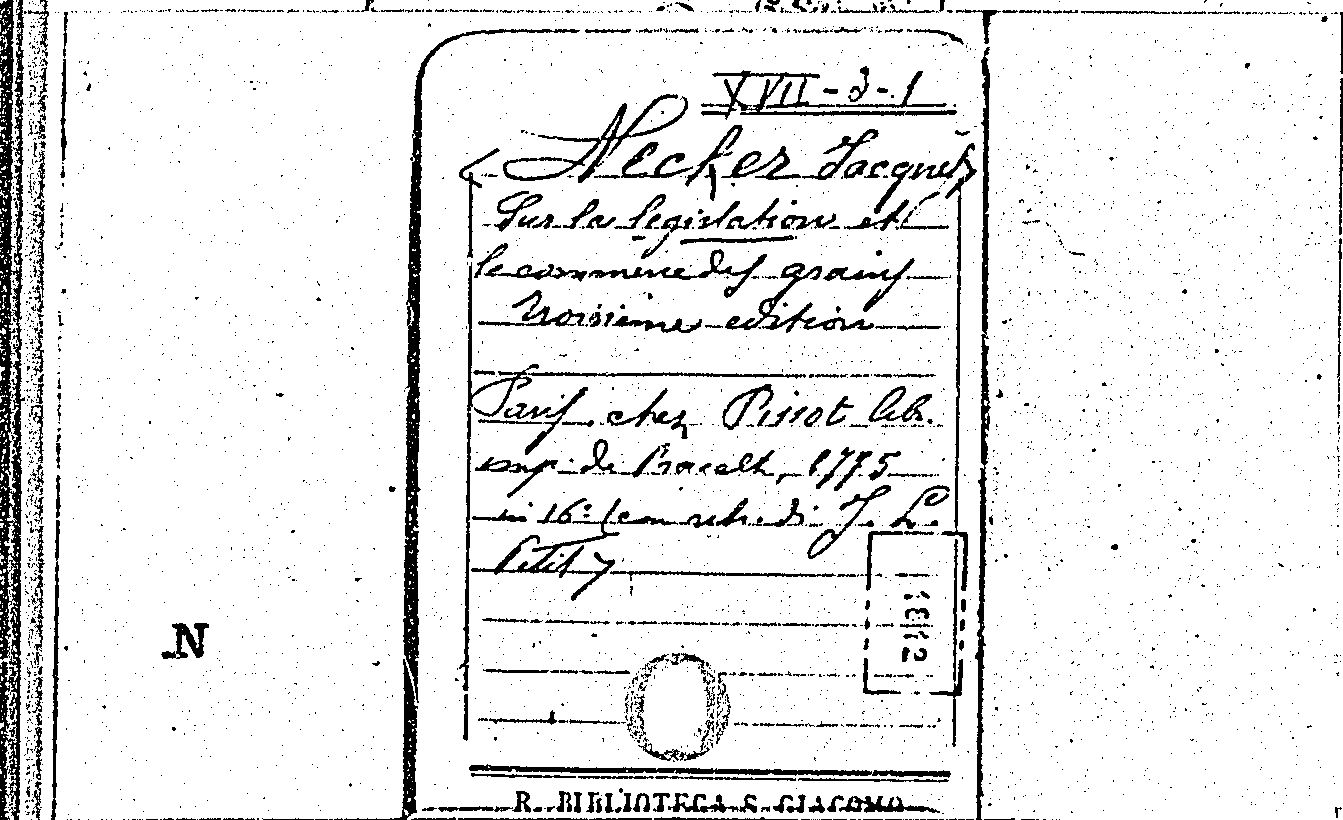 XVII-3-1
<Necker Jacques>
Sur la legislation et
le commerce des grains
troisieme edition
Paris chez Pissot lib.
imp. de Prault, 1775
in 16º (con retr. di J. L.
Petit)
N
R. BIBLIOTECA S. GIACOMO